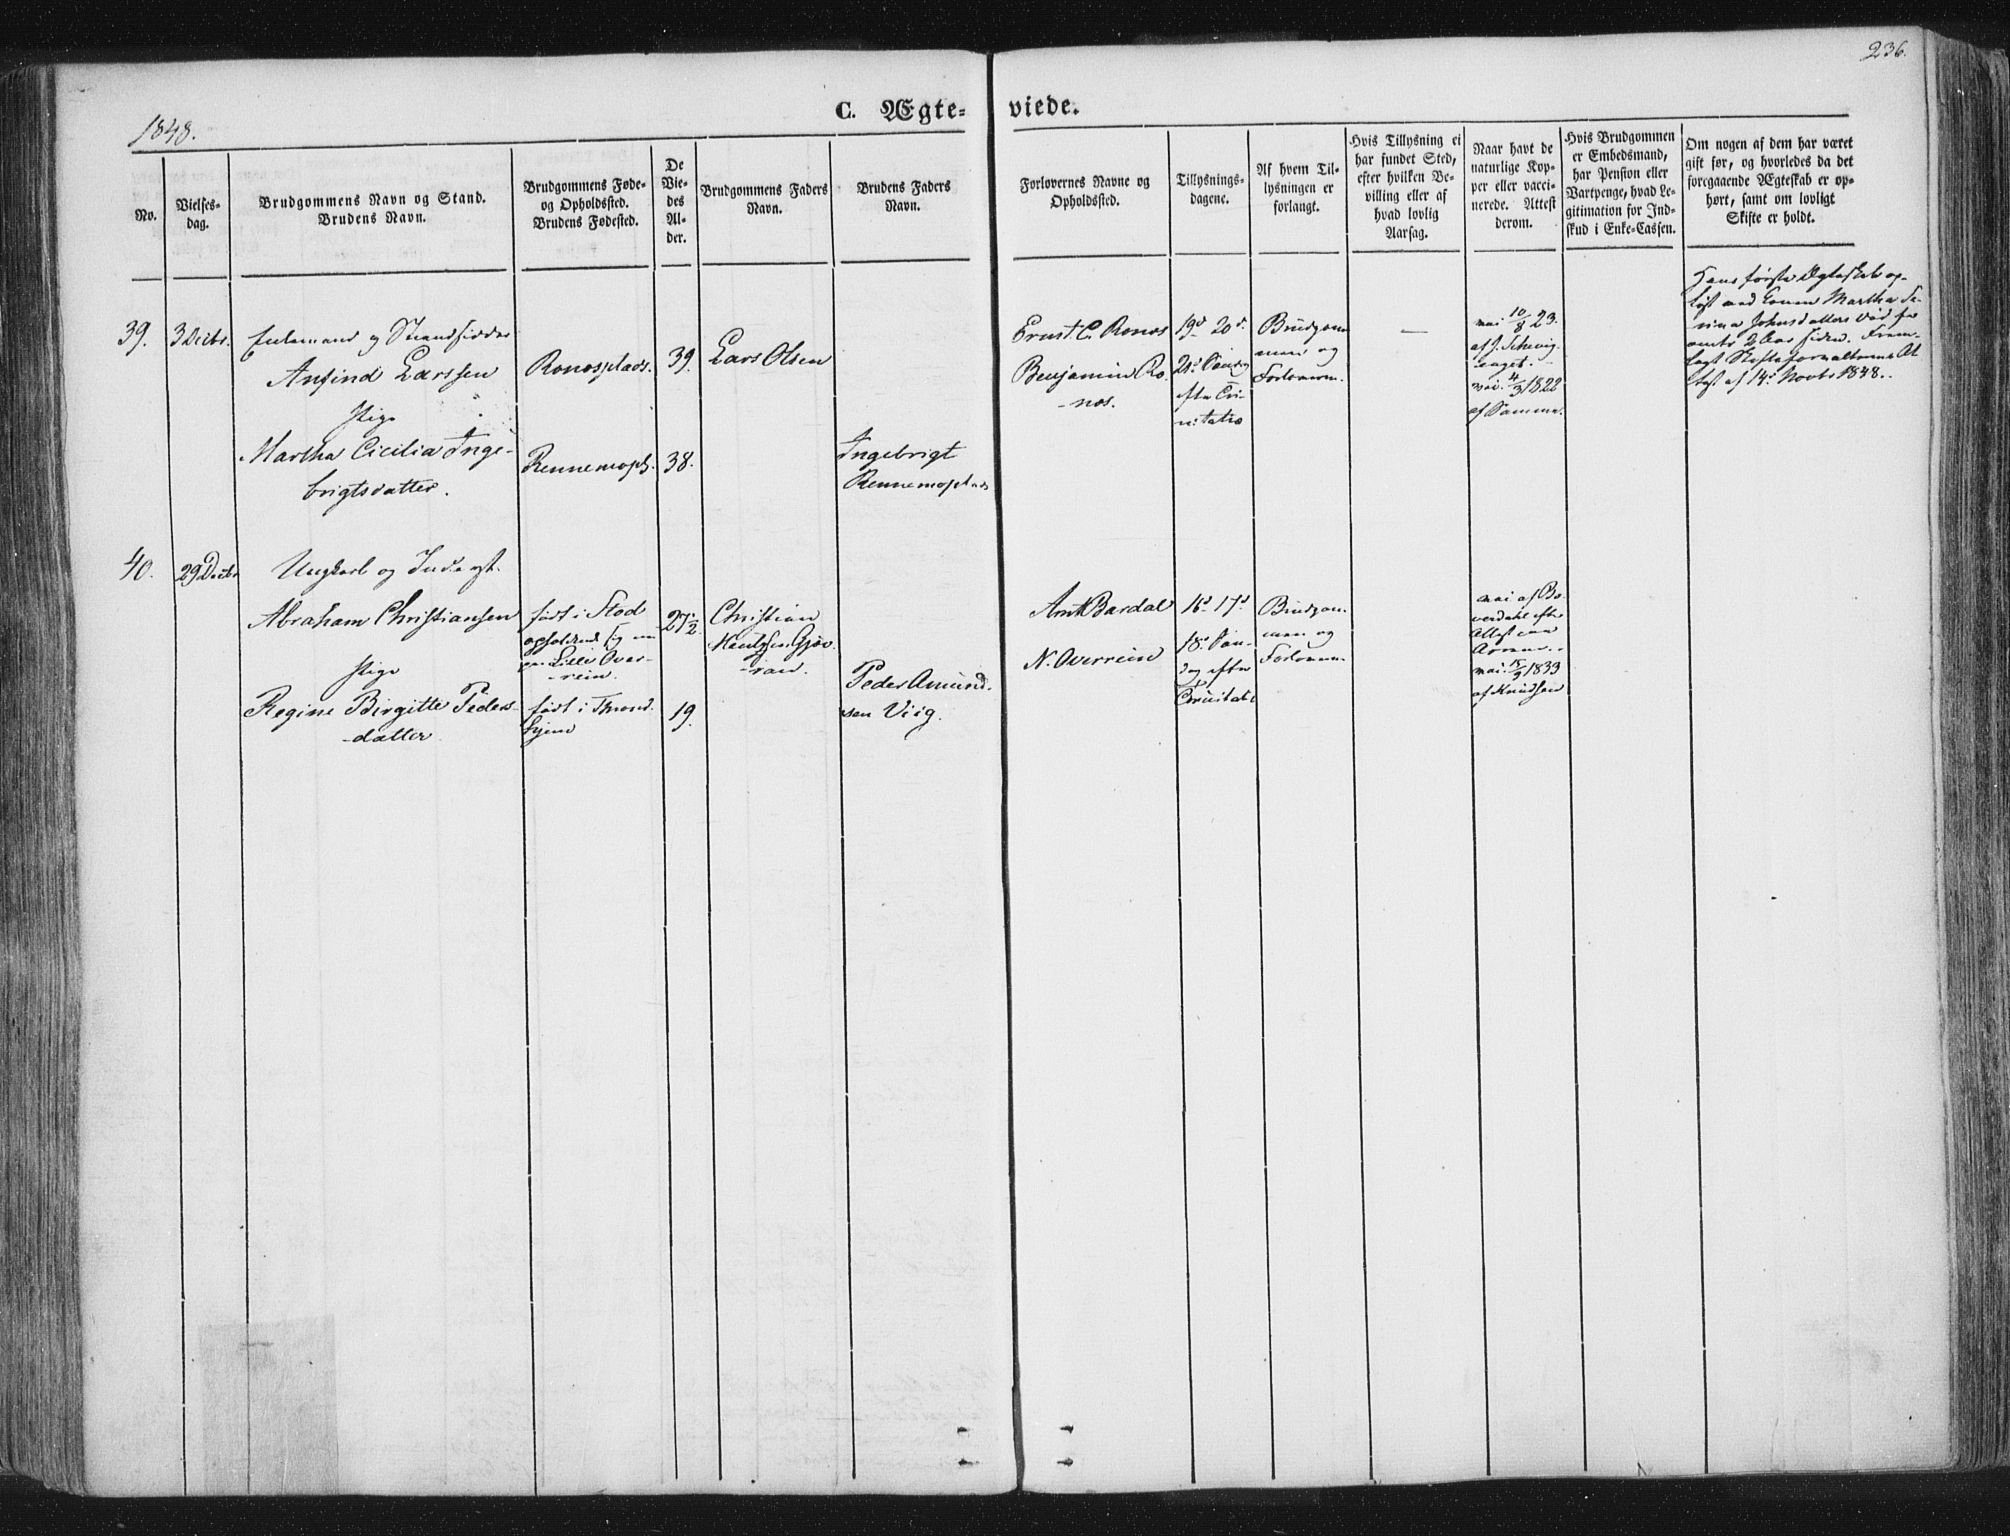 236.
C. Ægte-
viede.
1848.
No.
Vielses-
dag.
Brudgommens Navn og Stand.
Brudens Navn.
Brudgommens Føde-
og Opholdssted.
Brudens Fødested.
De
Vie-
des
Al-
der.
Brudgommens Faders
Navn.
Brudens Faders
Navn.
Forlovernes Navne og
Opholdssted.
Tillysnings-
dagene.
Af hvem Til-
lysningen er
forlangt.
Hvis Tillysning ei
har fundet Sted,
efter hvilken Be-
villing eller af
hvad lovlig
Aarsag.
Naar havt de
naturlige Kop-
per eller vacci-
nerede. Attest
derom.
Hvis Brudgommen
er Embedsmand,
har Pension eller
Vartpenge, hvad Le-
gitimation for Ind-
skud i Enke-Cassen.
Om nogen af dem har været
gift før, og hvorledes da det
foregaaende Ægteskab er op-
hørt, samt om lovligt
Skifte er holdt.
39.
3 Decbr.
Enkemand og Strandsidder
Anfind Larssen
Pige
Martha Cicilia Inge-
brigtsdatter.
Ronosplads.
Rennemopl.
39.
38.
Lars Olsen
Ingebrigt
Rennemoplads
Ernst C. Ronos
Benjamin Ro-
-nos.
19d 20d
21d Søndag
efter Tri-
nitatis
Brudgom-
men og
Forloverne.
—
10/8 23.
af J.
4/3 1822
af Samme.
Hans første Ægteskab op-
løst ved Konen Martha
Johnsdatters Død for
omtr 2 Aar siden. Frem-
lagt Skifteforvalterens At-
test af 14d Novbr 1848.
40.
29 Decbr
Ungkarl og Inderst.
Abraham Christiansen
Pige
Regine Birgitte Peders-
-datter
født i Stod
opholdende sig
Lille Over-
-rein.
født i Thrond-
hjem
27½.
19.
Christian
-ran.
Peder Amund-
sen Viig.
Arnt Bardal
N. Overrein
16d 17d
18d Søn-
dag efter
Trinitatis
Brudgom-
men og
Forloverne
af
Attest
1833
af Knudsen